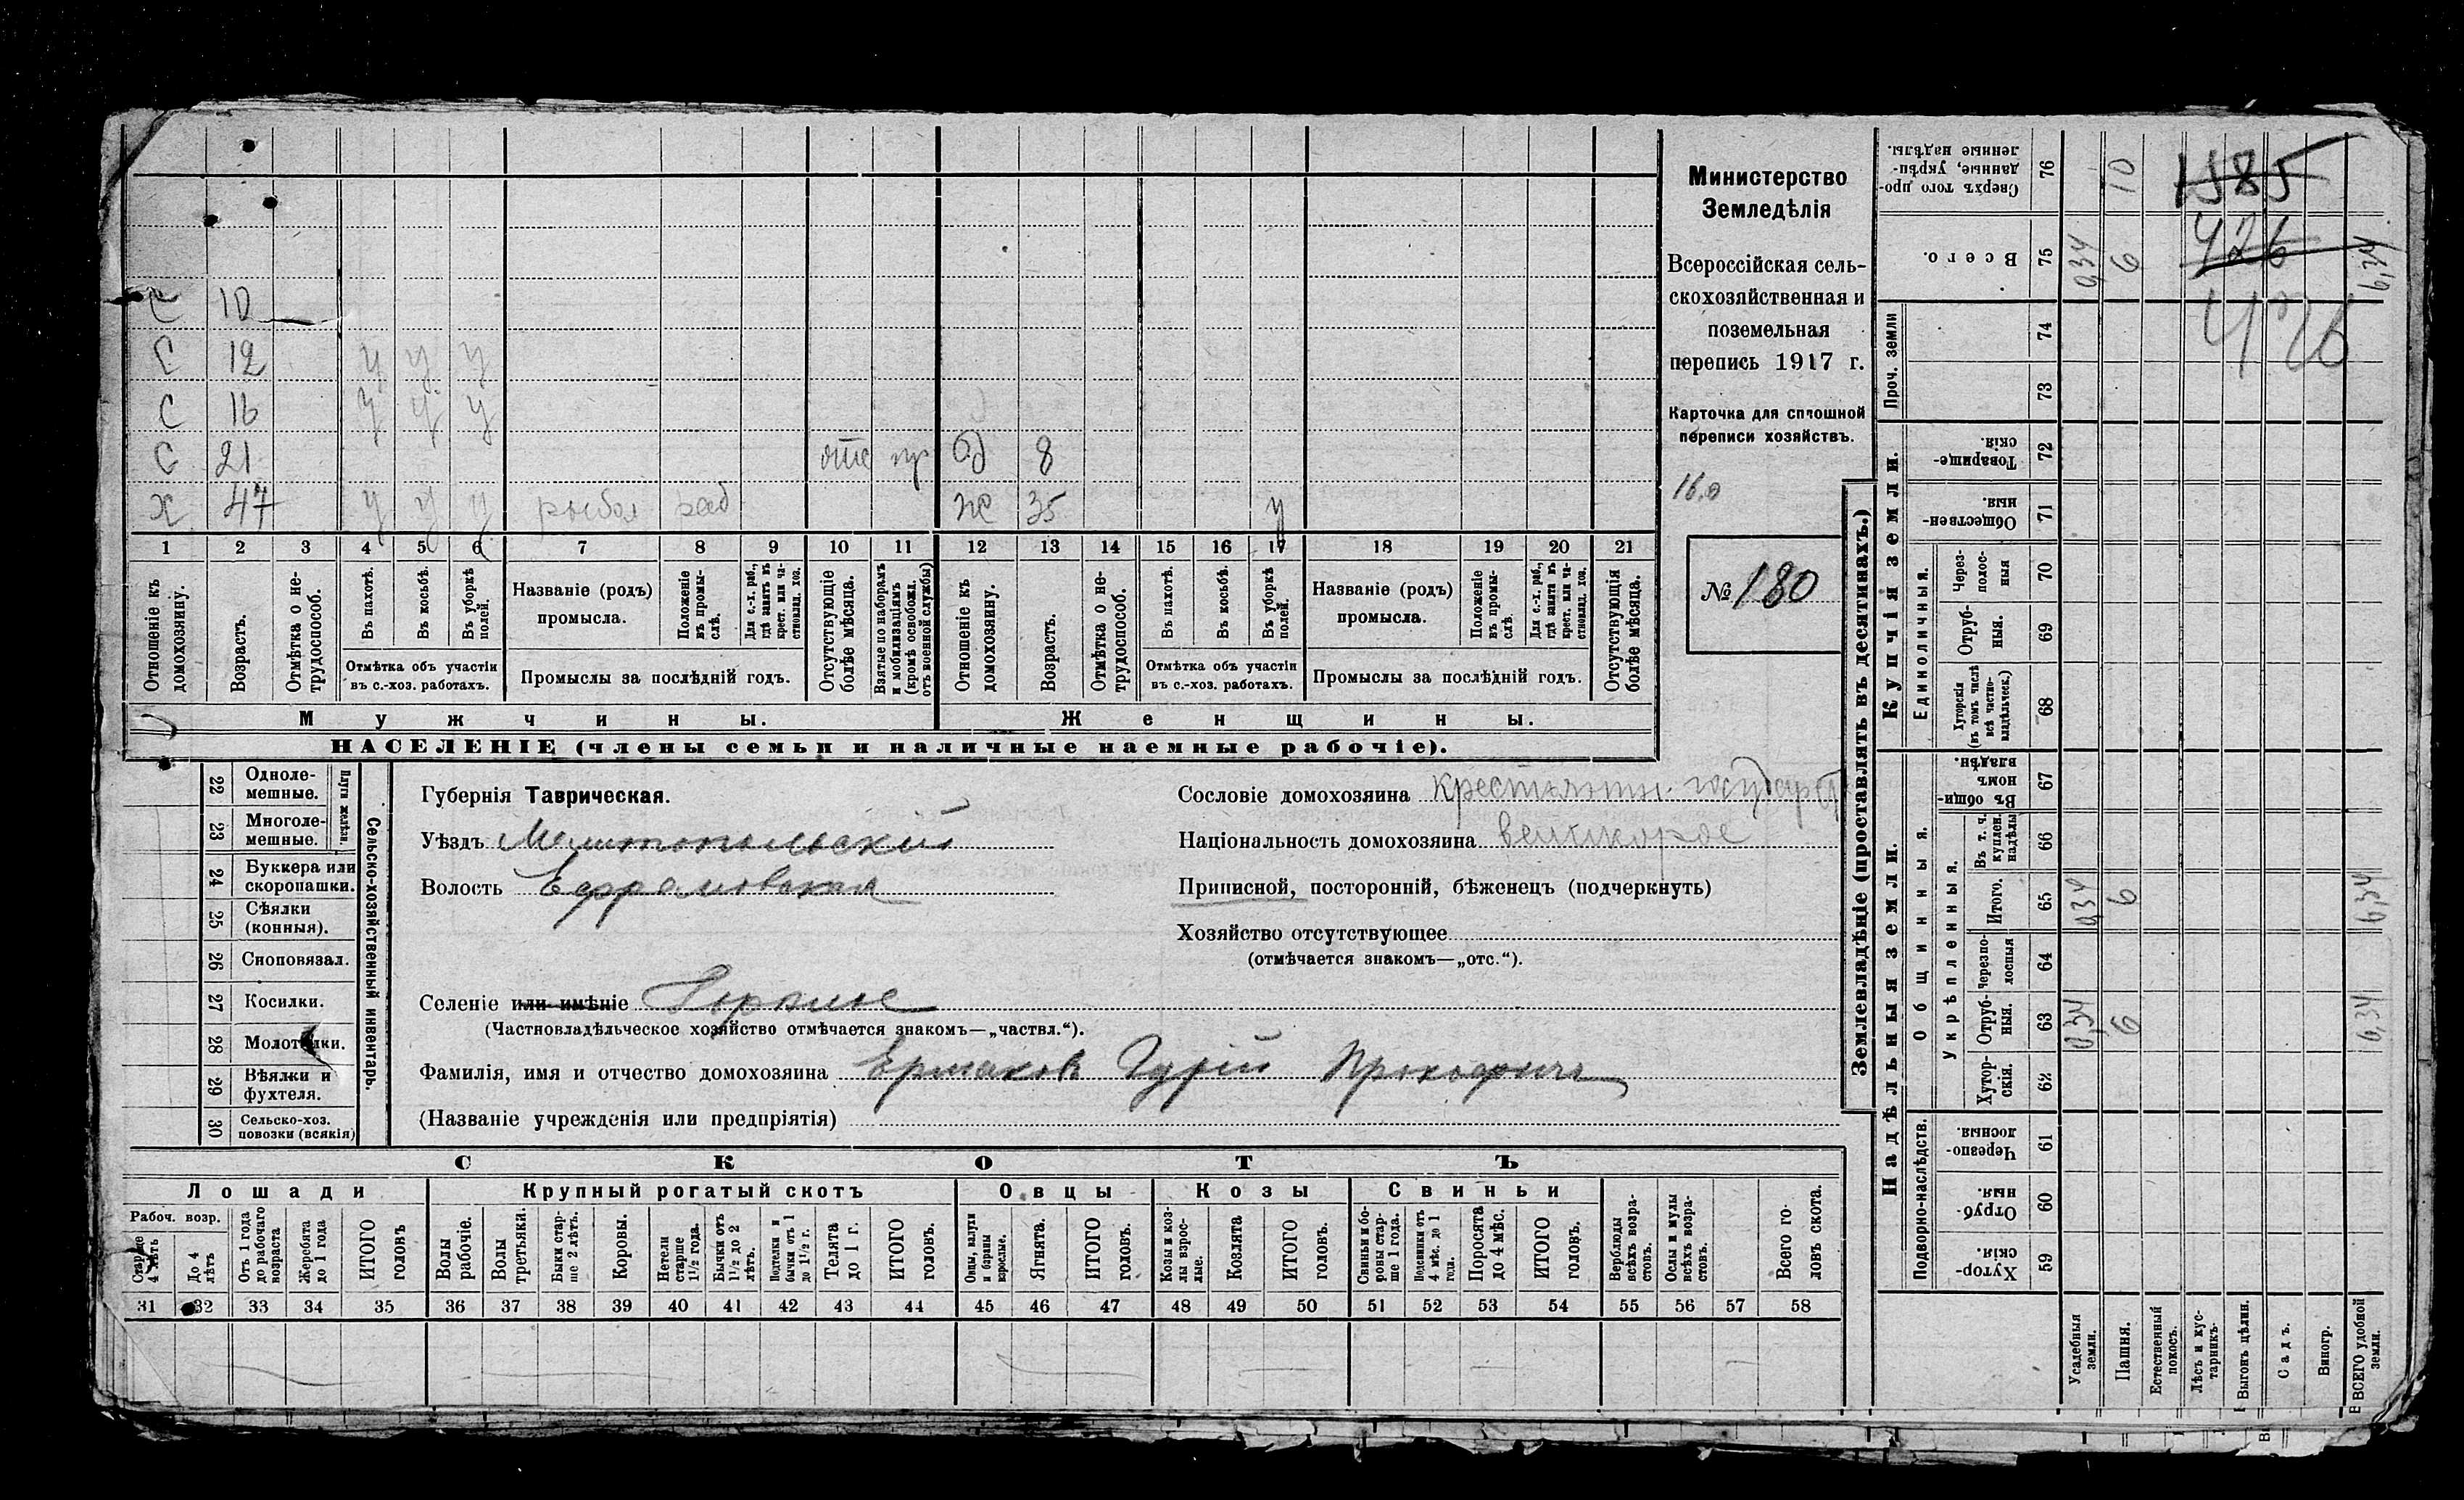 С 10
С 12 у у у
С 16 у у у
С 21 отс пр д 8
Х 47 у у у рыбол раб ж 35 у
1 2 3 4 5 6 7 8 9 10 11 12 13 14 15 16 17 18 19 20 21
Отношеніе къ домохозяину.
Возрастъ.
Отмѣтка о нетрудоспособ.
Въ пахотѣ.
Въ косьбѣ.
Въ уборкѣ полей.
Отмѣтка объ участіи въ с.-хоз. работахъ.
Названіе (родъ) промысла.
Положеніе въ промыслѣ.
Для с.-х. раб., гдѣ занятъ въ крест. или частновлад. хоз.
Промыслы за послѣдній годъ.
Отсутствующіе болѣе мѣсяца.
Взятые по наборамъ и мобилизаціямъ (кромѣ освобожд. отъ военной службы)
Отношеніе къ домохозяину.
Возрастъ.
Отмѣтка о нетрудоспособ.
Въ пахотѣ.
Въ косьбѣ.
Въ уборкѣ полей.
Отмѣтка объ участіи въ с.-хоз. работахъ.
Названіе (родъ) промысла.
Положеніе въ промыслѣ.
Для с.-х. раб., гдѣ занята въ крест. или частновлад. хоз.
Промыслы за послѣдній годъ.
Отсутствующія болѣе мѣсяца.
Мужчины.
Женщины.
НАСЕЛЕНІЕ (члены семьи и наличные наемные рабочіе).
Министерство
Земледѣлія
Всероссійская сель-
скохозяйственная и
поземельная
перепись 1917 г.
Карточка для сплошной
переписи хозяйствъ.
16,0
№ 180
22 Одноле-мешные.
23 Многоле-мешные.
Плуги желѣзн.
24 Буккера или скоропашки.
25 Сѣялки (конныя).
26 Сноповязал.
27 Косилки.
28 Молотилки.
29 Вѣялки и фухтеля.
30 Сельско-хоз. повозки (всякія)
Сельско-хозяйственный инвентарь.
Губернія Таврическая.
Уѣздъ Мелитопольскій
Волость Ефремовская
Селеніе или имѣніе Горѣлое
(Частновладѣльческое хозяйство отмѣчается знакомъ—„частвл.“).
Фамилія, имя и отчество домохозяина Ермаковъ Гурій Прокофіичъ
(Названіе учрежденія или предпріятія)
Сословіе домохозяина крестьянин. государ
Національность домохозяина великорос
Приписной, посторонній, бѣженецъ (подчеркнуть)
Хозяйство отсутствующее
(отмѣчается знакомъ—„отс.“).
СКОТЪ
Лошади Крупный рогатый скотъ Овцы Козы Свиньи
Рабоч. возр.
Старше 4 лѣтъ
До 4 лѣтъ
Отъ 1 года до рабочаго возраста
Жеребята до 1 года
ИТОГО головъ
Волы рабочіе.
Волы третьяки.
Быки старше 2 лѣтъ.
Коровы.
Нетели старше 1½ года.
Бычки отъ 1½ до 2 лѣтъ.
Подтелки и бычки отъ 1 до 1½ г.
Телята до 1 г.
ИТОГО головъ.
Овцы, валухи и бараны взрослые.
Ягнята.
ИТОГО головъ.
Козы и козлы взрослые.
Козлята
ИТОГО головъ.
Свиньи и боровы старше 1 года.
Подсвинки отъ 4 мѣс. до 1 года.
Поросята до 4 мѣс.
ИТОГО головъ.
Верблюды всѣхъ возрастовъ.
Ослы и мулы всѣхъ возрастовъ.
Всего головъ скота.
31 32 33 34 35 36 37 38 39 40 41 42 43 44 45 46 47 48 49 50 51 52 53 54 55 56 57 58
Землевладѣніе (проставлять въ десятинахъ.)
Надѣльныя земли.
Купчія земли.
Проч. земли
Подворно-наслѣдств.
Общинныя.
Укрѣпленныя.
Единоличныя.
Сверхъ того проданные, укрѣпленные надѣлы. 76 10
Всего. 75 0,34 6 6,34
74
73
Товарищескія. 72
Общественныя 71
Черезполосныя 70
Отрубныя. 69
Хуторскія (въ томъ числѣ всѣ частновладѣльческ.) 68
Въ общинномъ владѣн. 67
Въ т. ч. куплен. надѣлы 66
Итого. 65 0,34 6 6,34
Черезполосныя 64
Отрубныя. 63 0,34 6 6,34
Хуторскія. 62
Черезполосныя. 61
Отрубныя. 60
Хуторскія. 59
Усадебныя земли.
Пашня.
Естественный покосъ.
Лѣсъ и кустарникъ
Выгонъ цѣлин.
Садъ.
Виногр.
ВСЕГО удобной земли.
1585
426
426